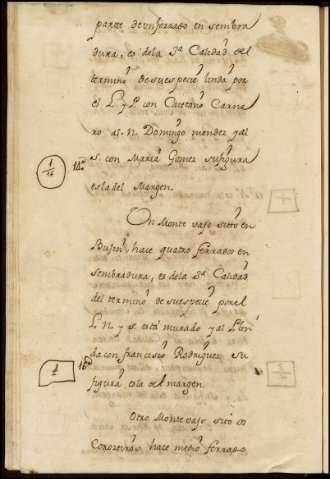 parte de un ferrado en sembra
dura, es dela 3ª Calidad del
termino de su especie linda por
el L. y P. con Caietano Carne
ro al N. Domingo mendez y al
S. con Maria Gomez su figura
es la del Margen.
Un Monte vajo sito en
hace quatro ferrados en
sembradura, es dela 3ª Calidad
del termino de su especie por el
L. N. y S. está murado y al P. lin
da con francisco Rodriguez su
figura es la del margen
Otro Monte vajo sito en
hace medio ferrado